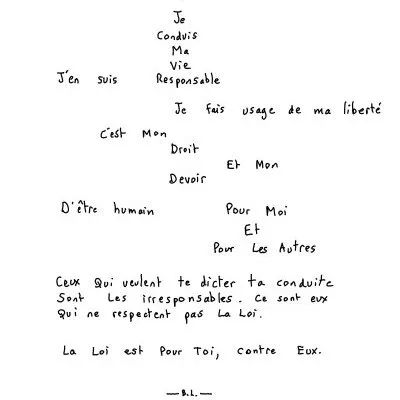 Je
Conduis
Ma
Vie
J'en suis Responsable
Je fais usage de ma liberté
C'est Mon
Droit
Et Mon
Devoir
D'être humain Pour Moi
Et
Pour Les Autres
Ceux Qui veulent te dicter ta conduite
Sont Les irresponsables. Ce sont eux
Qui ne respectent pas La Loi.
La Loi est Pour Toi, contre Eux.
—B.L.—